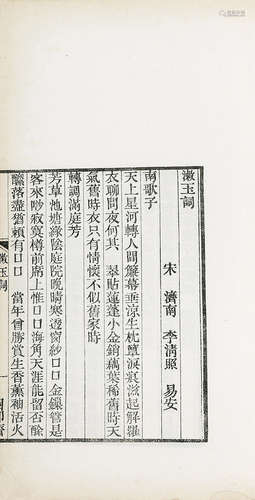 漱玉詞
宋 濟南 李淸照 易安
南歌子
天上星河轉人間簾幕垂涼生枕簟淚痕滋起解羅
衣聊問夜何其 翠貼蓮蓬小金銷藕葉稀舊時天
氣舊時衣只有情懷不似舊家時
轉調滿庭芳
芳草池塘綠陰庭院晚晴寒透窗紗□□金鏁管是
客來唦寂寞樽前席上惟□□海角天涯能留否酴
釄落盡猶賴有□□ 當年曾勝賞生香薰袖活火
漱玉詞